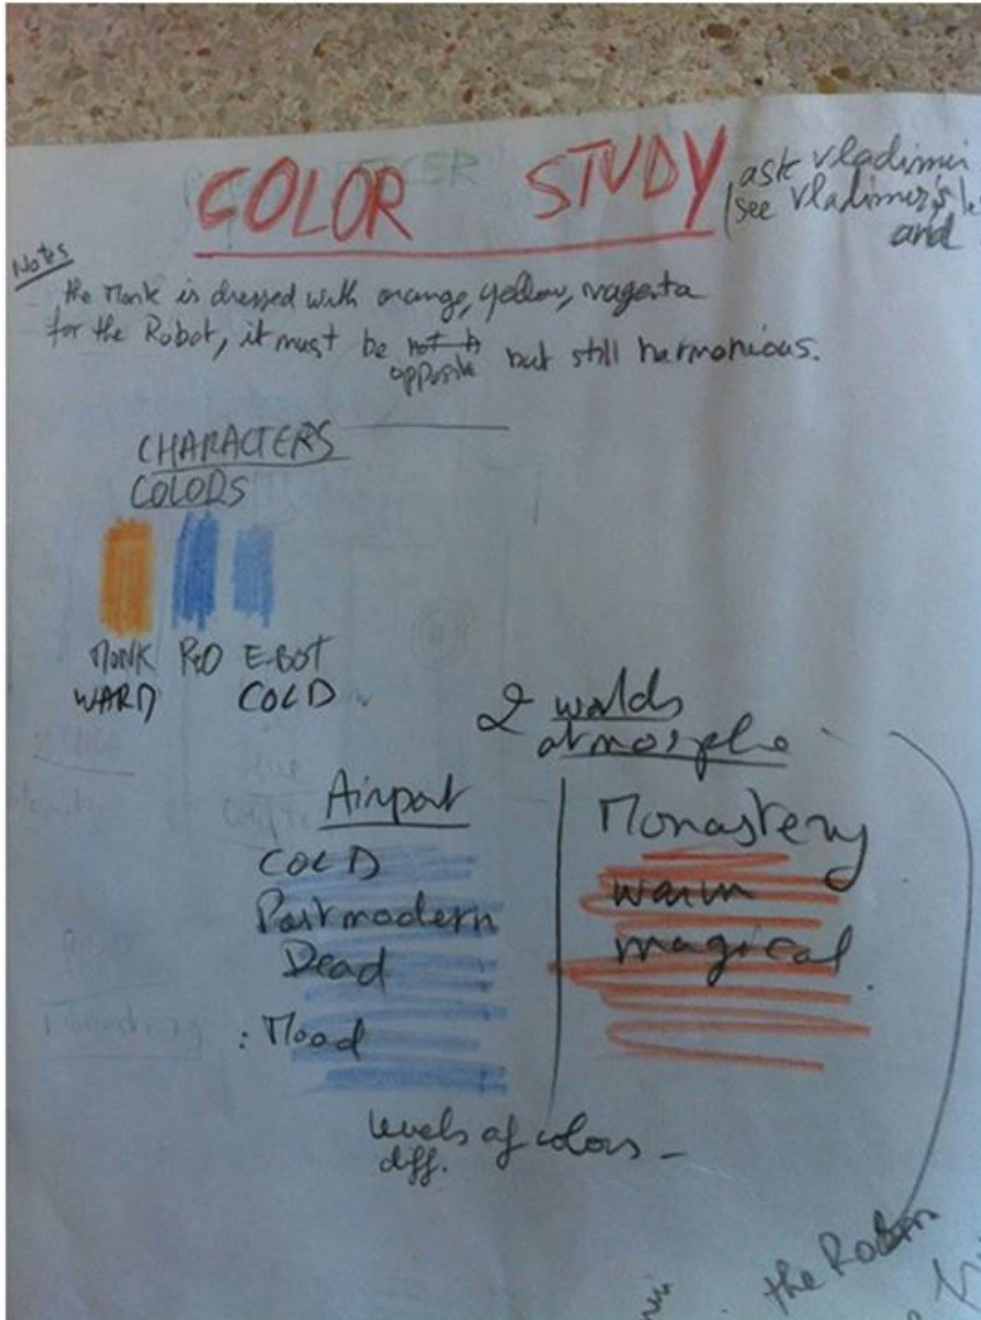 COLOR STUDY
ask vladimir
(see Vladimir's
and
Notes
the Monk is dressed with orange, yellow, magenta
for the Robot, it must be opposite but still harmonious.
CHARACTERS
COLORS
MONK
E-BOT
WARM
COLD
2 worlds
atmosphe
Airport
COLD
Postmodern
Dead
: Mood
Monastery
warm
magical
levels of colors -
diff.
the Robot